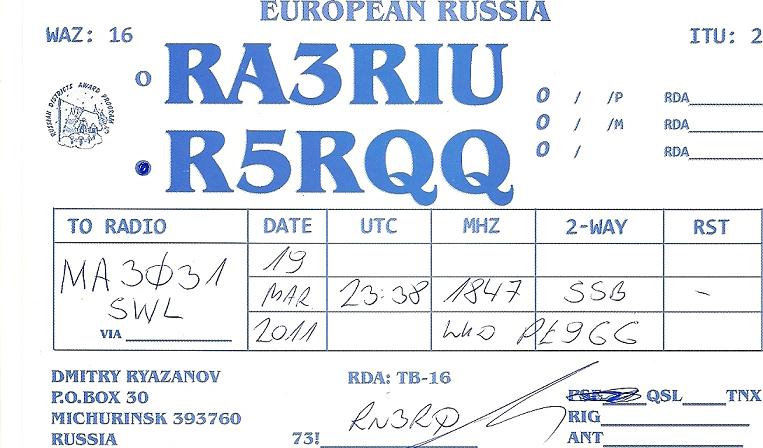 EUROPEAN RUSSIA
WAZ: 16
ITU: 2
RUSSIAN DISTRICTS AWARD PROGRAM
O RA3RIU
R5RQQ
0 / /P RDA
0 / /M RDA
0 / RDA
TO RADIO DATE UTC MHZ 2-WAY RST
MA3Ø31 19
SWL MAR 23:38 1847 SSB -
VIA 2011 WKD PE9GG
DMITRY RYAZANOV
P.O.BOX 30
MICHURINSK 393760
RUSSIA
RDA: TB-16
73! RN3RQ
PSE QSL TNX
RIG
ANT